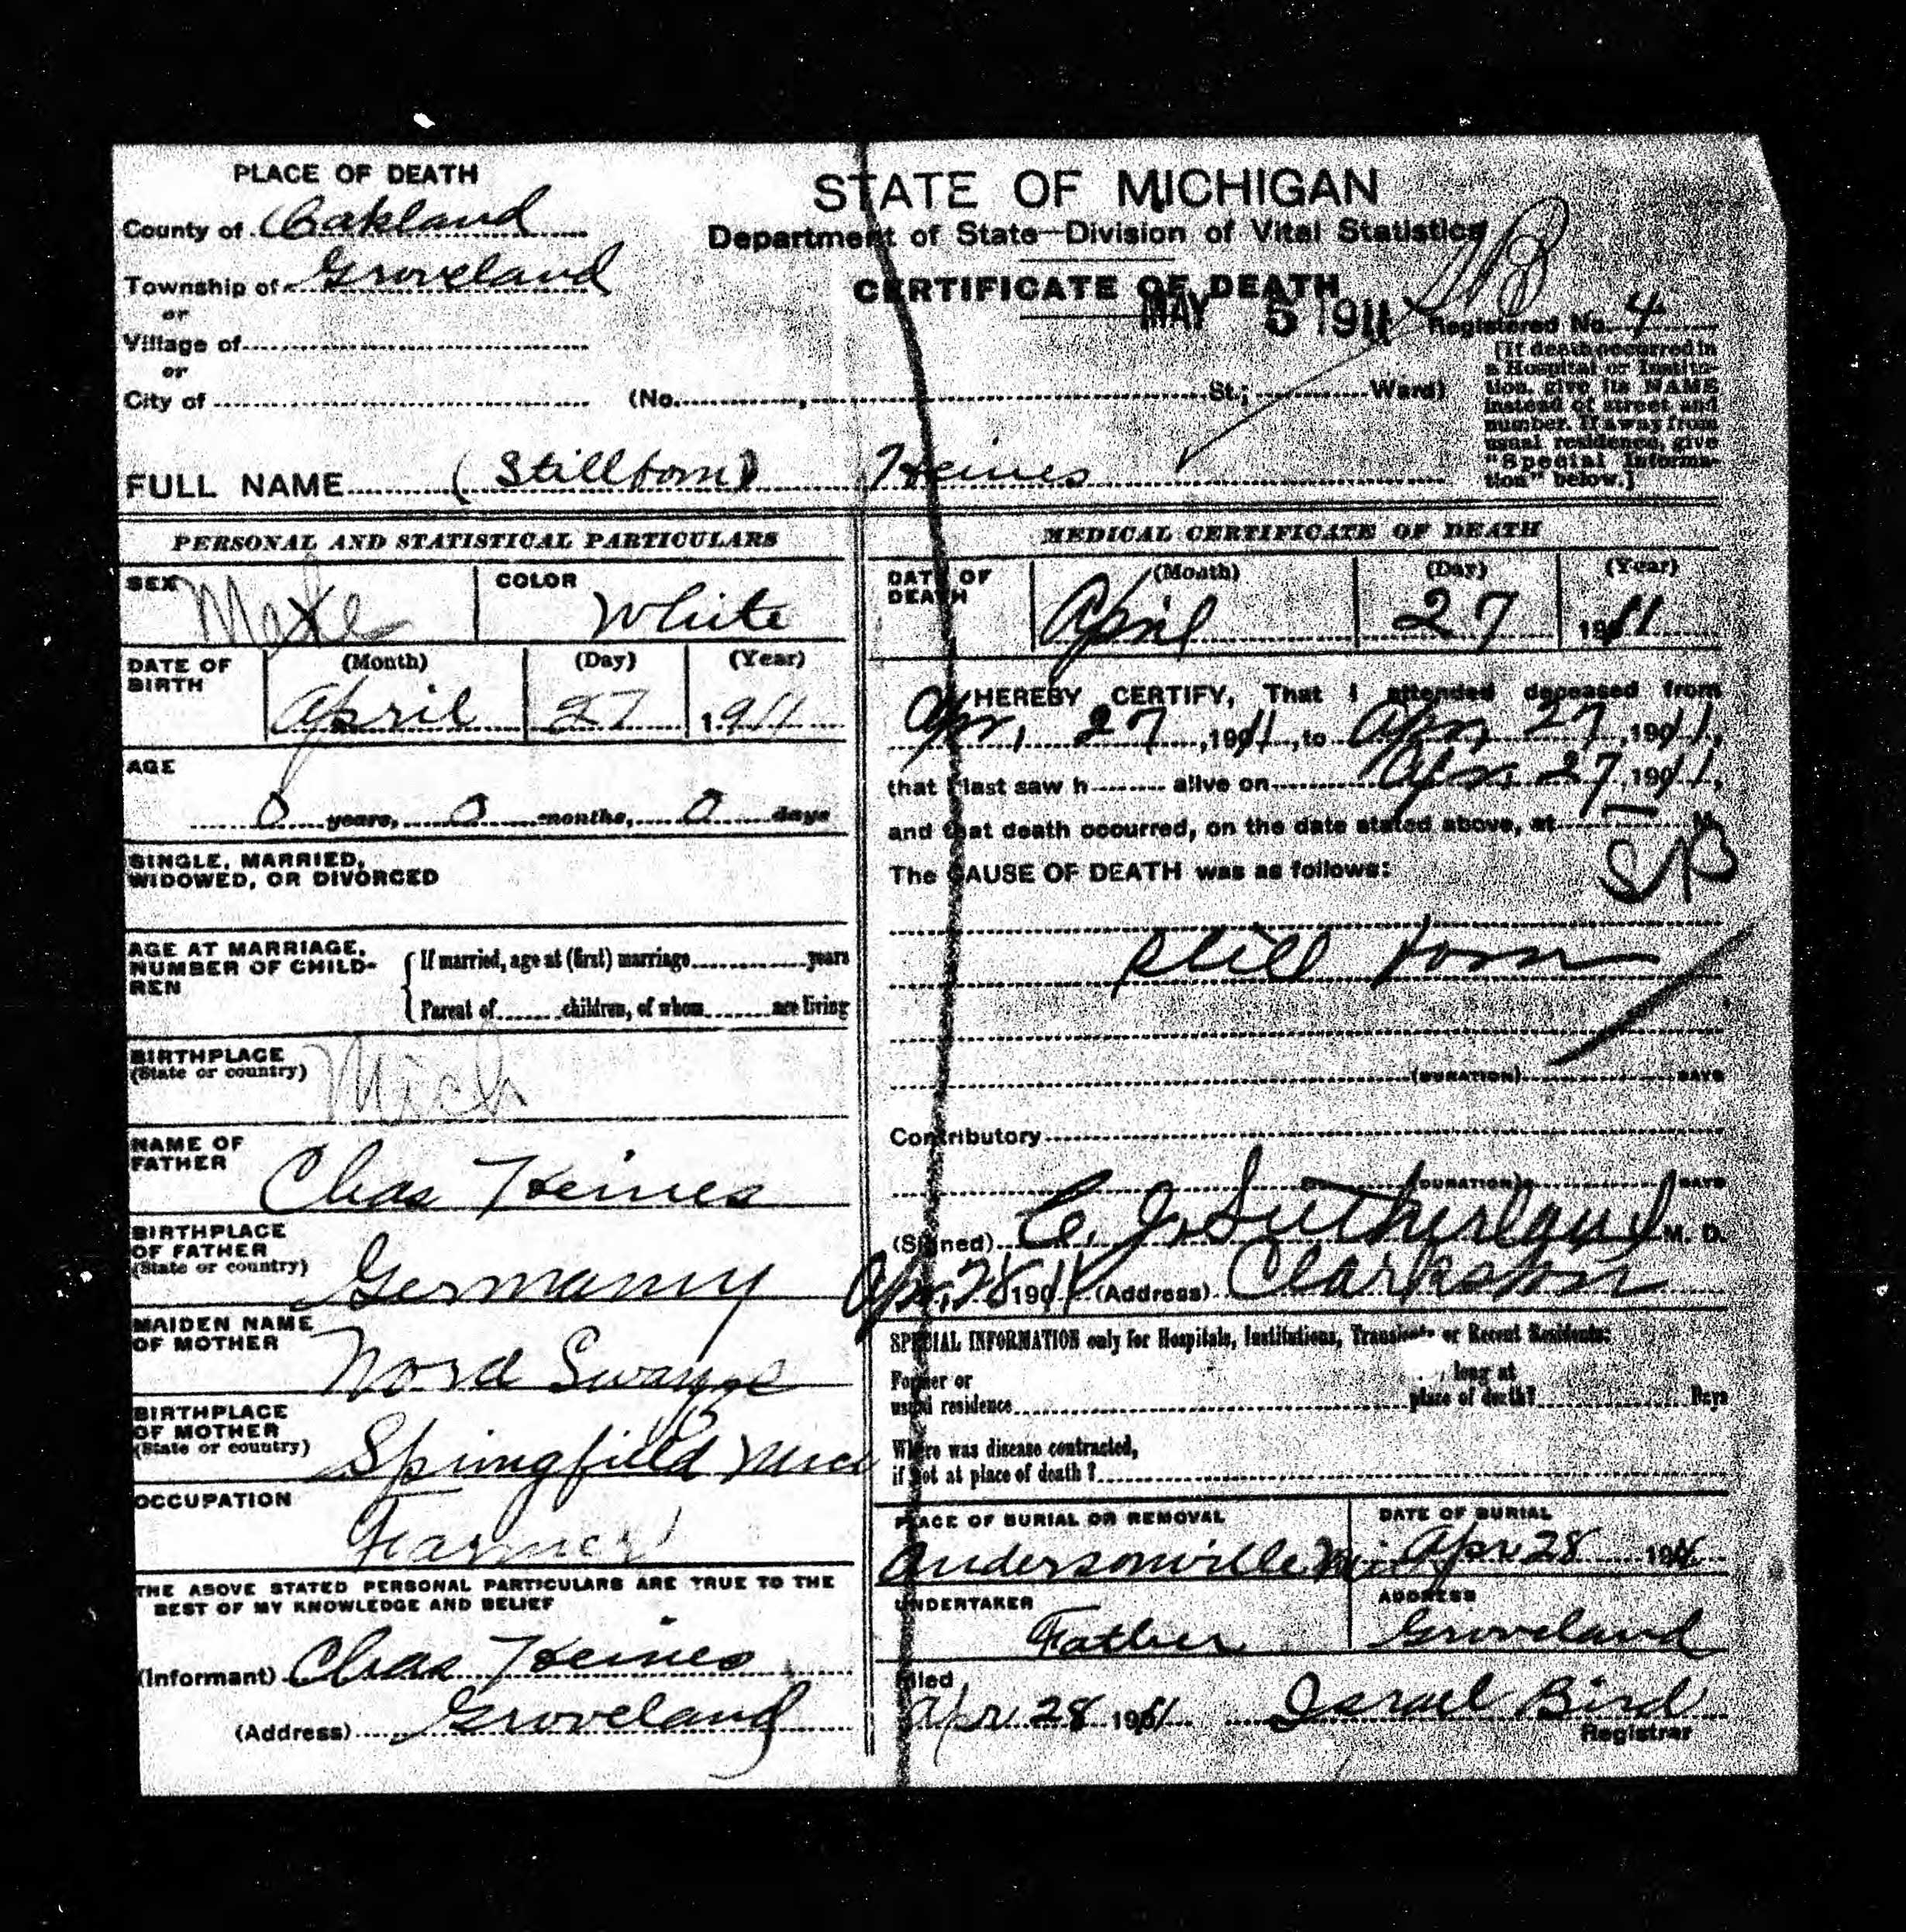 PLACE OF DEATH
County of Oakland
Township of Groveland
or
Village of
or
City of
STATE OF MICHIGAN
Department of State—Division of Vital Statistics
CERTIFICATE OF DEATH
MAY 5 1911
Registered No. 4
(No. , St.; Ward)
[If death occurred in
a Hospital or Institu-
tion, give its NAME
instead of street, and
number. If away from
usual residence, give
"Special Informa-
tion" below.]
FULL NAME (Stillborn) Heines
PERSONAL AND STATISTICAL PARTICULARS
SEX Male
COLOR White
DATE OF BIRTH (Month) (Day) (Year)
April 27 1911
AGE
0 years, 0 months, 0 days
SINGLE, MARRIED,
WIDOWED, OR DIVORCED
AGE AT MARRIAGE,
NUMBER OF CHILD-
REN
If married, age at (first) marriage years
Parent of children, of whom are living
BIRTHPLACE
(State or country) Mich
NAME OF
FATHER Chas Heines
BIRTHPLACE
OF FATHER
(State or country) Germany
MAIDEN NAME
OF MOTHER Nora
BIRTHPLACE
OF MOTHER
(State or country) Springfield Mich
OCCUPATION
Farmer
THE ABOVE STATED PERSONAL PARTICULARS ARE TRUE TO THE
BEST OF MY KNOWLEDGE AND BELIEF
(Informant) Chas Heines
(Address) Groveland
MEDICAL CERTIFICATE OF DEATH
DATE OF DEATH (Month) (Day) (Year)
April 27 1911
I HEREBY CERTIFY, That I attended deceased from
Apr, 27, 1911, to Apr 27, 1911,
that I last saw h alive on Apr. 27, 1911,
and that death occurred, on the date stated above, at — M.
The CAUSE OF DEATH was as follows:
SB
Still born
(DURATION) DAYS
Contributory
(DURATION) DAYS
(Signed) C. J. Sutherland M. D.
Apr, 28 1911 (Address) Clarkston
SPECIAL INFORMATION only for Hospitals, Institutions, Transients or Recent Residents:
Former or
usual residence
long at
place of death? Days
Where was disease contracted,
if not at place of death?
PLACE OF BURIAL OR REMOVAL
Andersonville Mi
DATE OF BURIAL
Apr 28 1911
UNDERTAKER
Father
ADDRESS
Groveland
Filed
Apr 28 1911 Israel Bird
Registrar